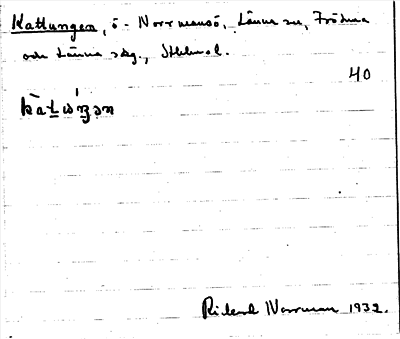 Kattungen, ö - Norrmansö, Länna sn, Frötuna
och Länna skg., Sthlms l.
40
Rickard Norrman 1932.